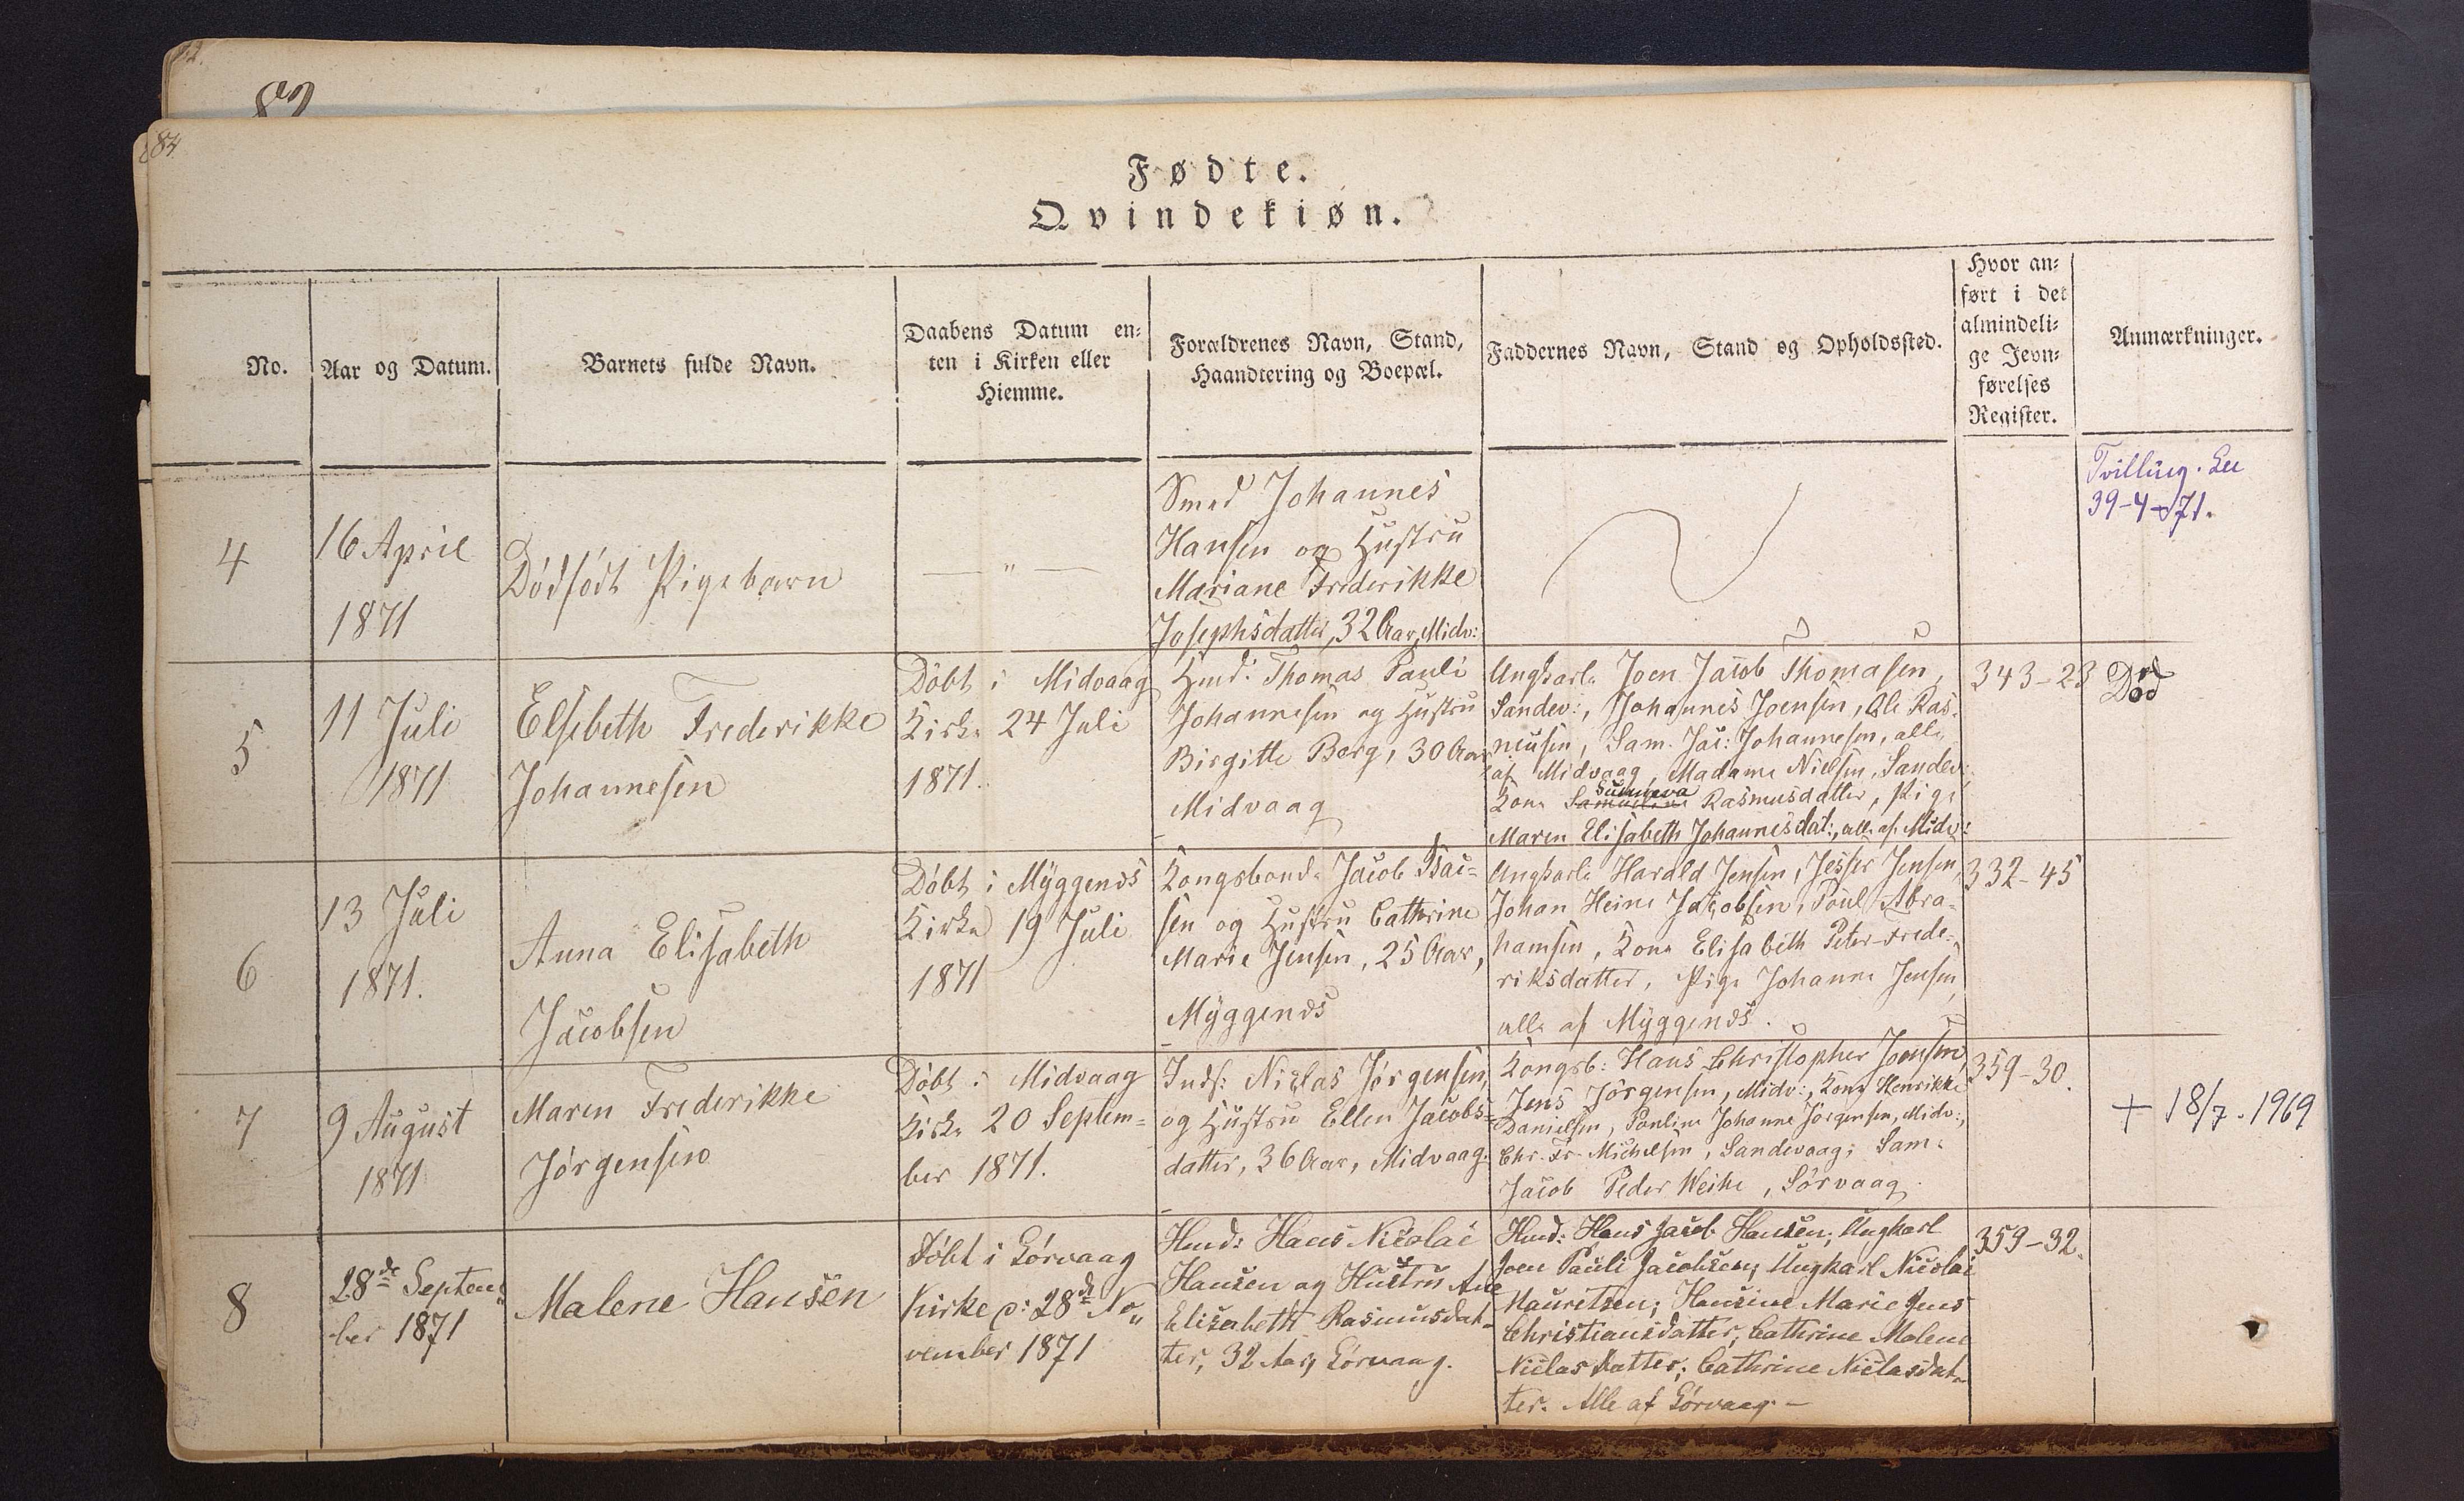 84
Fødte.
Qvindekiøn.
No.
Aar og Datum.
Barnets fulde Navn.
Daabens Datum en-
ten i Kirken eller
Hiemme.
Forældrenes Navn, Stand,
Haandtering og Boepæl.
Faddernes Navn, Stand og Opholdssted.
Hvor an-
ført i det
almindeli-
ge Jevn-
førelses
Register.
Anmærkninger.
4
16 April
1871
Dödfödt Pigebarn
— " —
Smed Johannes
Hansen og Hustru
Mariane Frederikke
Josephsdatter, 32 Aar, Midv:
Tvilling.
39-4-71.
5
11 Juli
1871
Elsebeth Frederikke
Johannesen
Döbt i Midvaag
Kirke 24 Juli
1871.
Hmd: Thomas Pauli
Johannesen og Hustru
Birgitte Berg, 30 Aar
Midvaag
Ungkarle Joen Jacob Thomasen,
Sandev:, Johannes Joensen, Ole Ras-
musen, Sam. Jac: Johannesen, alle
af Midvaag, Madame Nielsen, Sandev:
Kone Sunneva Rasmusdatter, Pige
Maren Elisabeth Johannesdat:, alle af Midv:
343-23
Död
6
13 Juli
1871.
Anna Elisabeth
Jacobsen
Döbt i Myggenæs
Kirke 19 Juli
1871
Kongsbonde Jacob Isac-
sen og Hustru Cathrine
Marie Jensen, 25 Aar,
Myggenæs
Ungkarle Harald Jensen, Jesper Jensen,
Johan Heine Jacobsen, Poul Abra-
hamsen, Kone Elisabeth Peter-Frede-
riksdatter, Pige Johanne Jensen,
alle af Myggenæs.
332-45
7
9 August
1871
Maren Frederikke
Jörgensen
Döbt i Midvaag
Kirke 20 Septem-
ber 1871.
Inds: Niclas Jörgensen,
og Hustru Ellen Jacobs-
datter, 36 Aar, Midvaag.
Kongsb: Hans Christopher Joensen,
Jens Jörgensen, Midv:, Kone Henrikke
Danielsen, Pauline Johanne Jörgensen, Midv:,
Chr. Fr. Michelsen, Sandevaag; Sam.
Jacob Peder Weihe, Sörvaag.
359-30.
+ 18/7. 1969
8
28de Septem„
ber 1871
Malene Hansen
Döbt i Sörvaag
Kirke d: 28de No„
vember 1871
Hmd: Hans Nicolai
Hansen og Hustru Ane
Elisabeth Rasmusdat-
ter, 32 Aar, Sörvaag.
Hmd: Hans Jacob Hansen; Ungkarl
Joen Pauli Jacobsen; Ungkarl Nicolai
Mauretsen; Hansine Marie Jens
Christiansdatter; Cathrine Malene
Niclasdatter; Cathrine Niclasdat-
ter. Alle af Sörvaag. —
359-32.